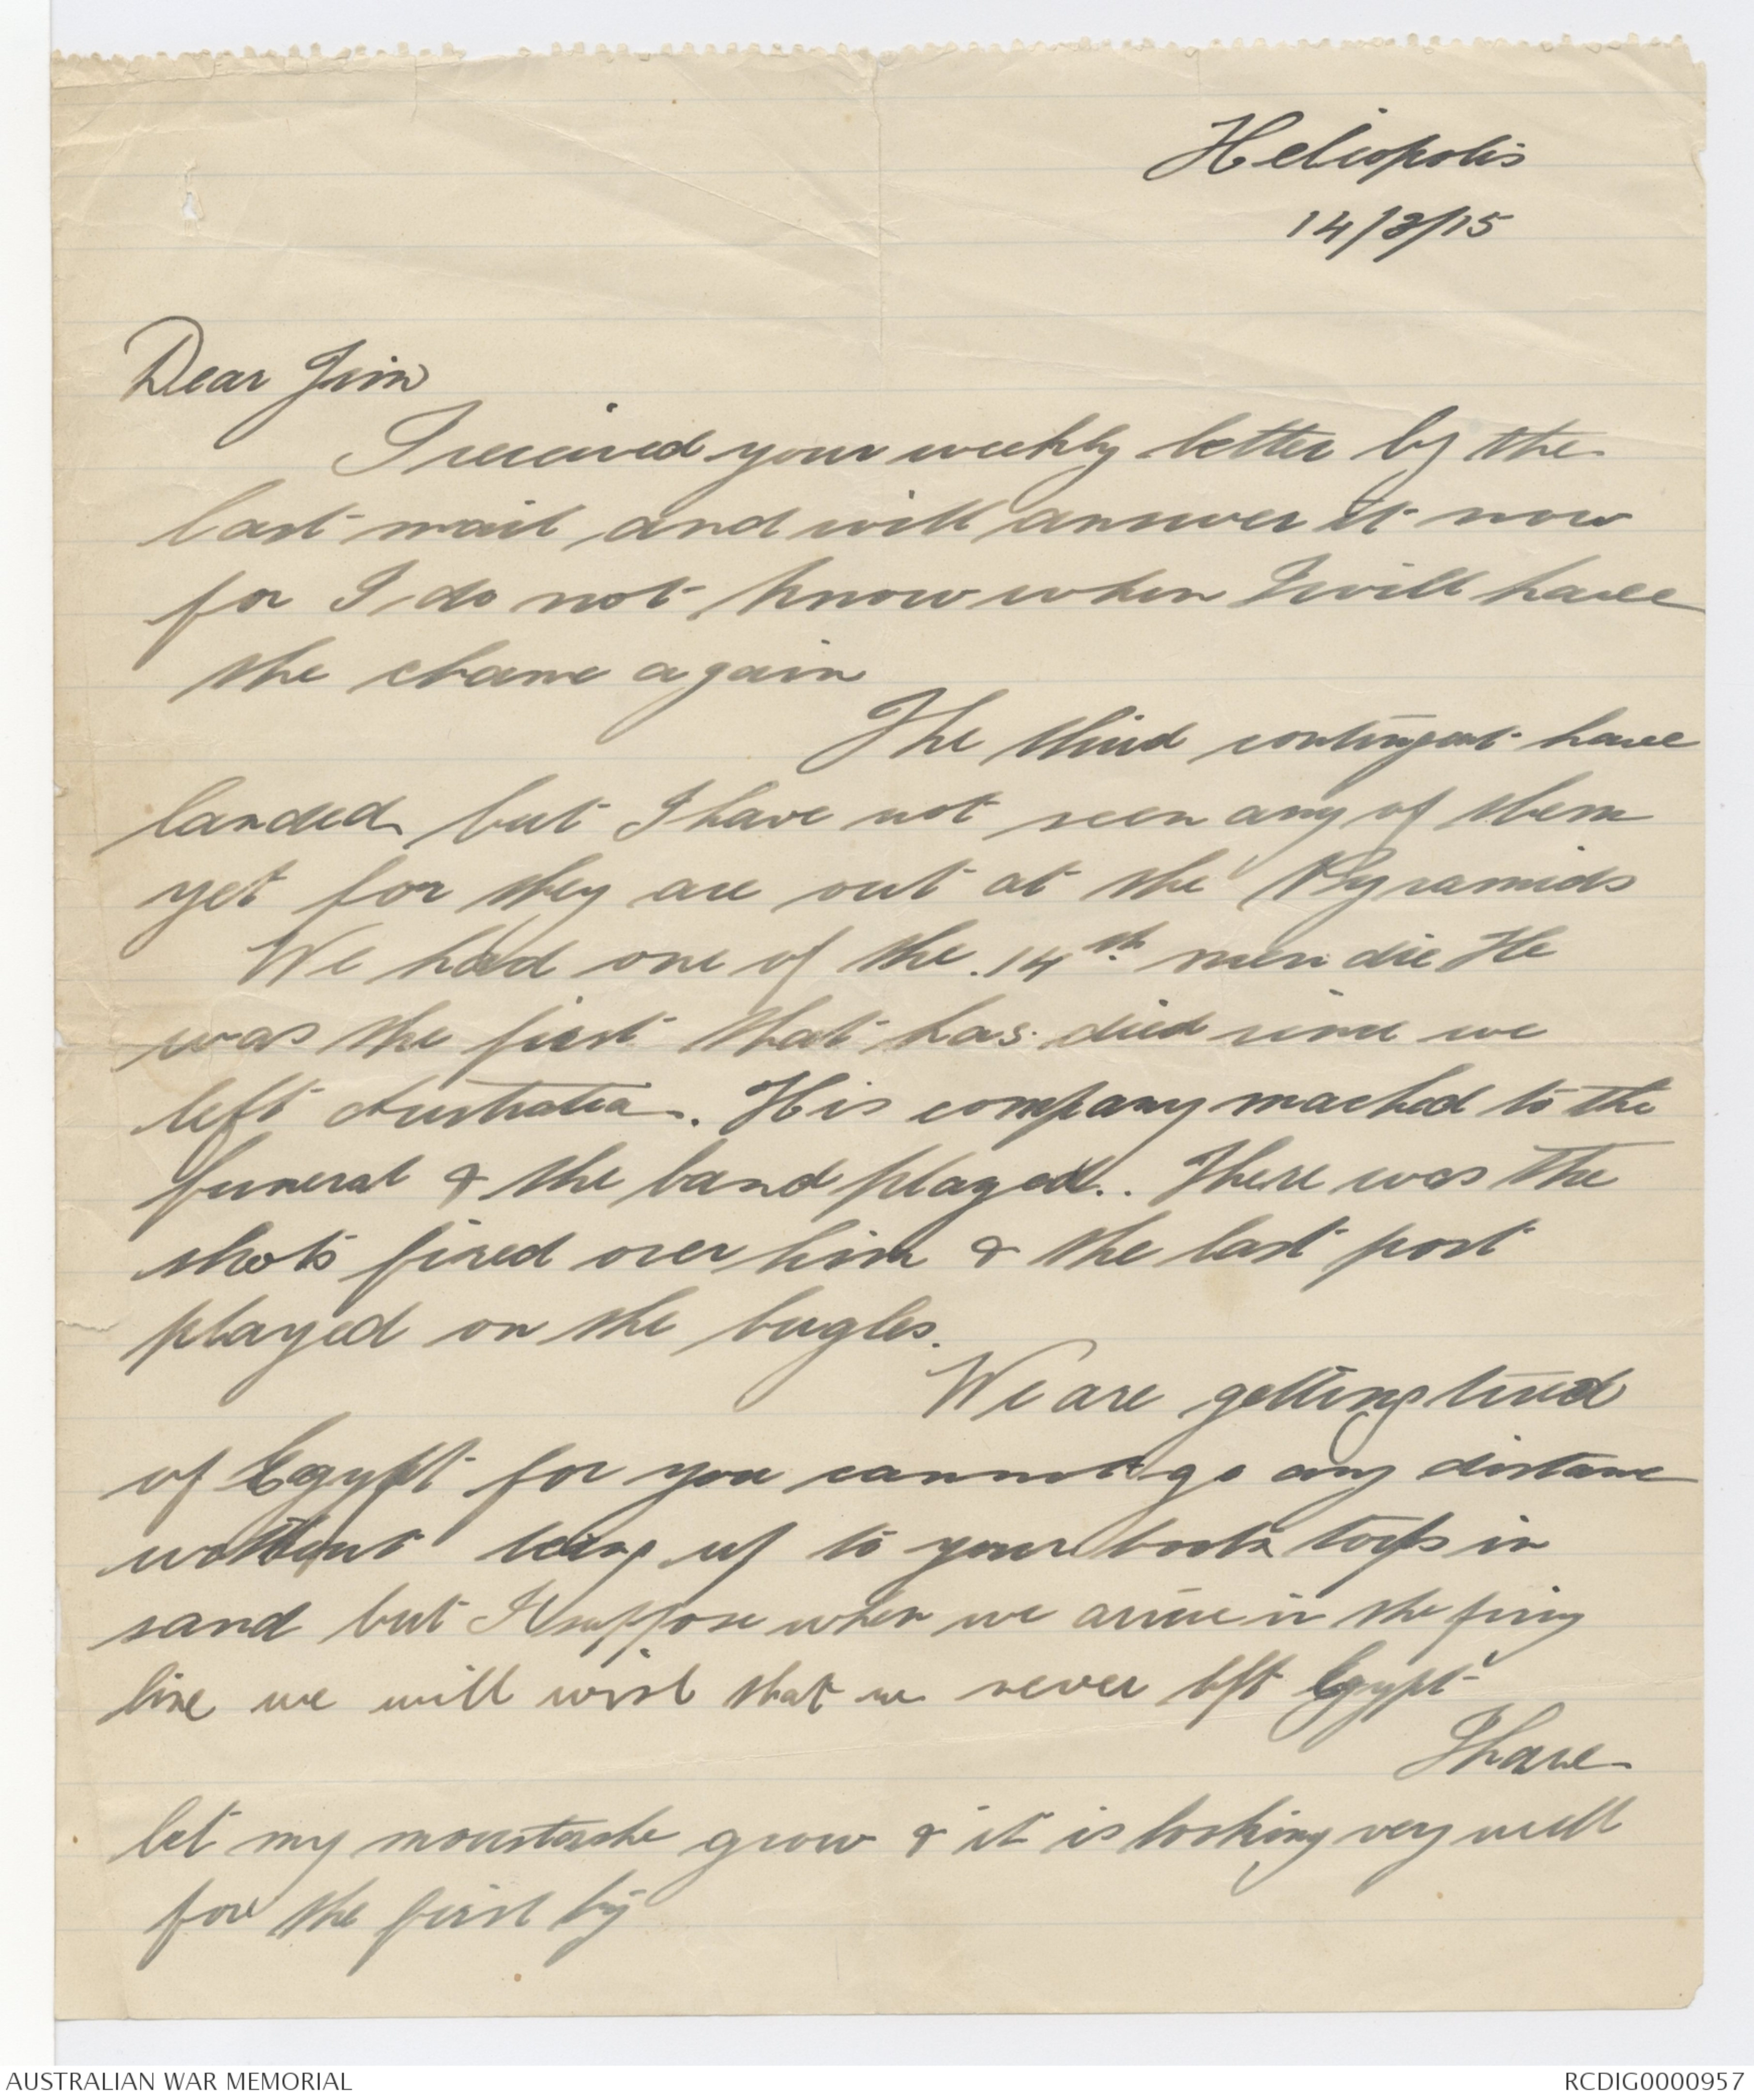 Heliopolis
14/3/15
Dear Jim
I received your weekly letter by the
last mail and will answer it now
for I do not know when I will have
the chance again
The third contingent have
landed but I have not seen any of them
yet for they are out at the Pyramids
We had one of the 14th men die He
was the first that has died since we
left Australia. His company mached to the
funeral & the band played. There was the
shots fired over him & the last post
played on the bugles.
We are getting tired
of Egypt for you cannot go any distance
without being up to your boots tops in
sand but I suppose when we arrive in the firing
line we will wish that we never left Egypt
I have
let my moustache grow & it is looking very well
for the first try
AUSTRALIAN WAR MEMORIAL
RCDIG0000957